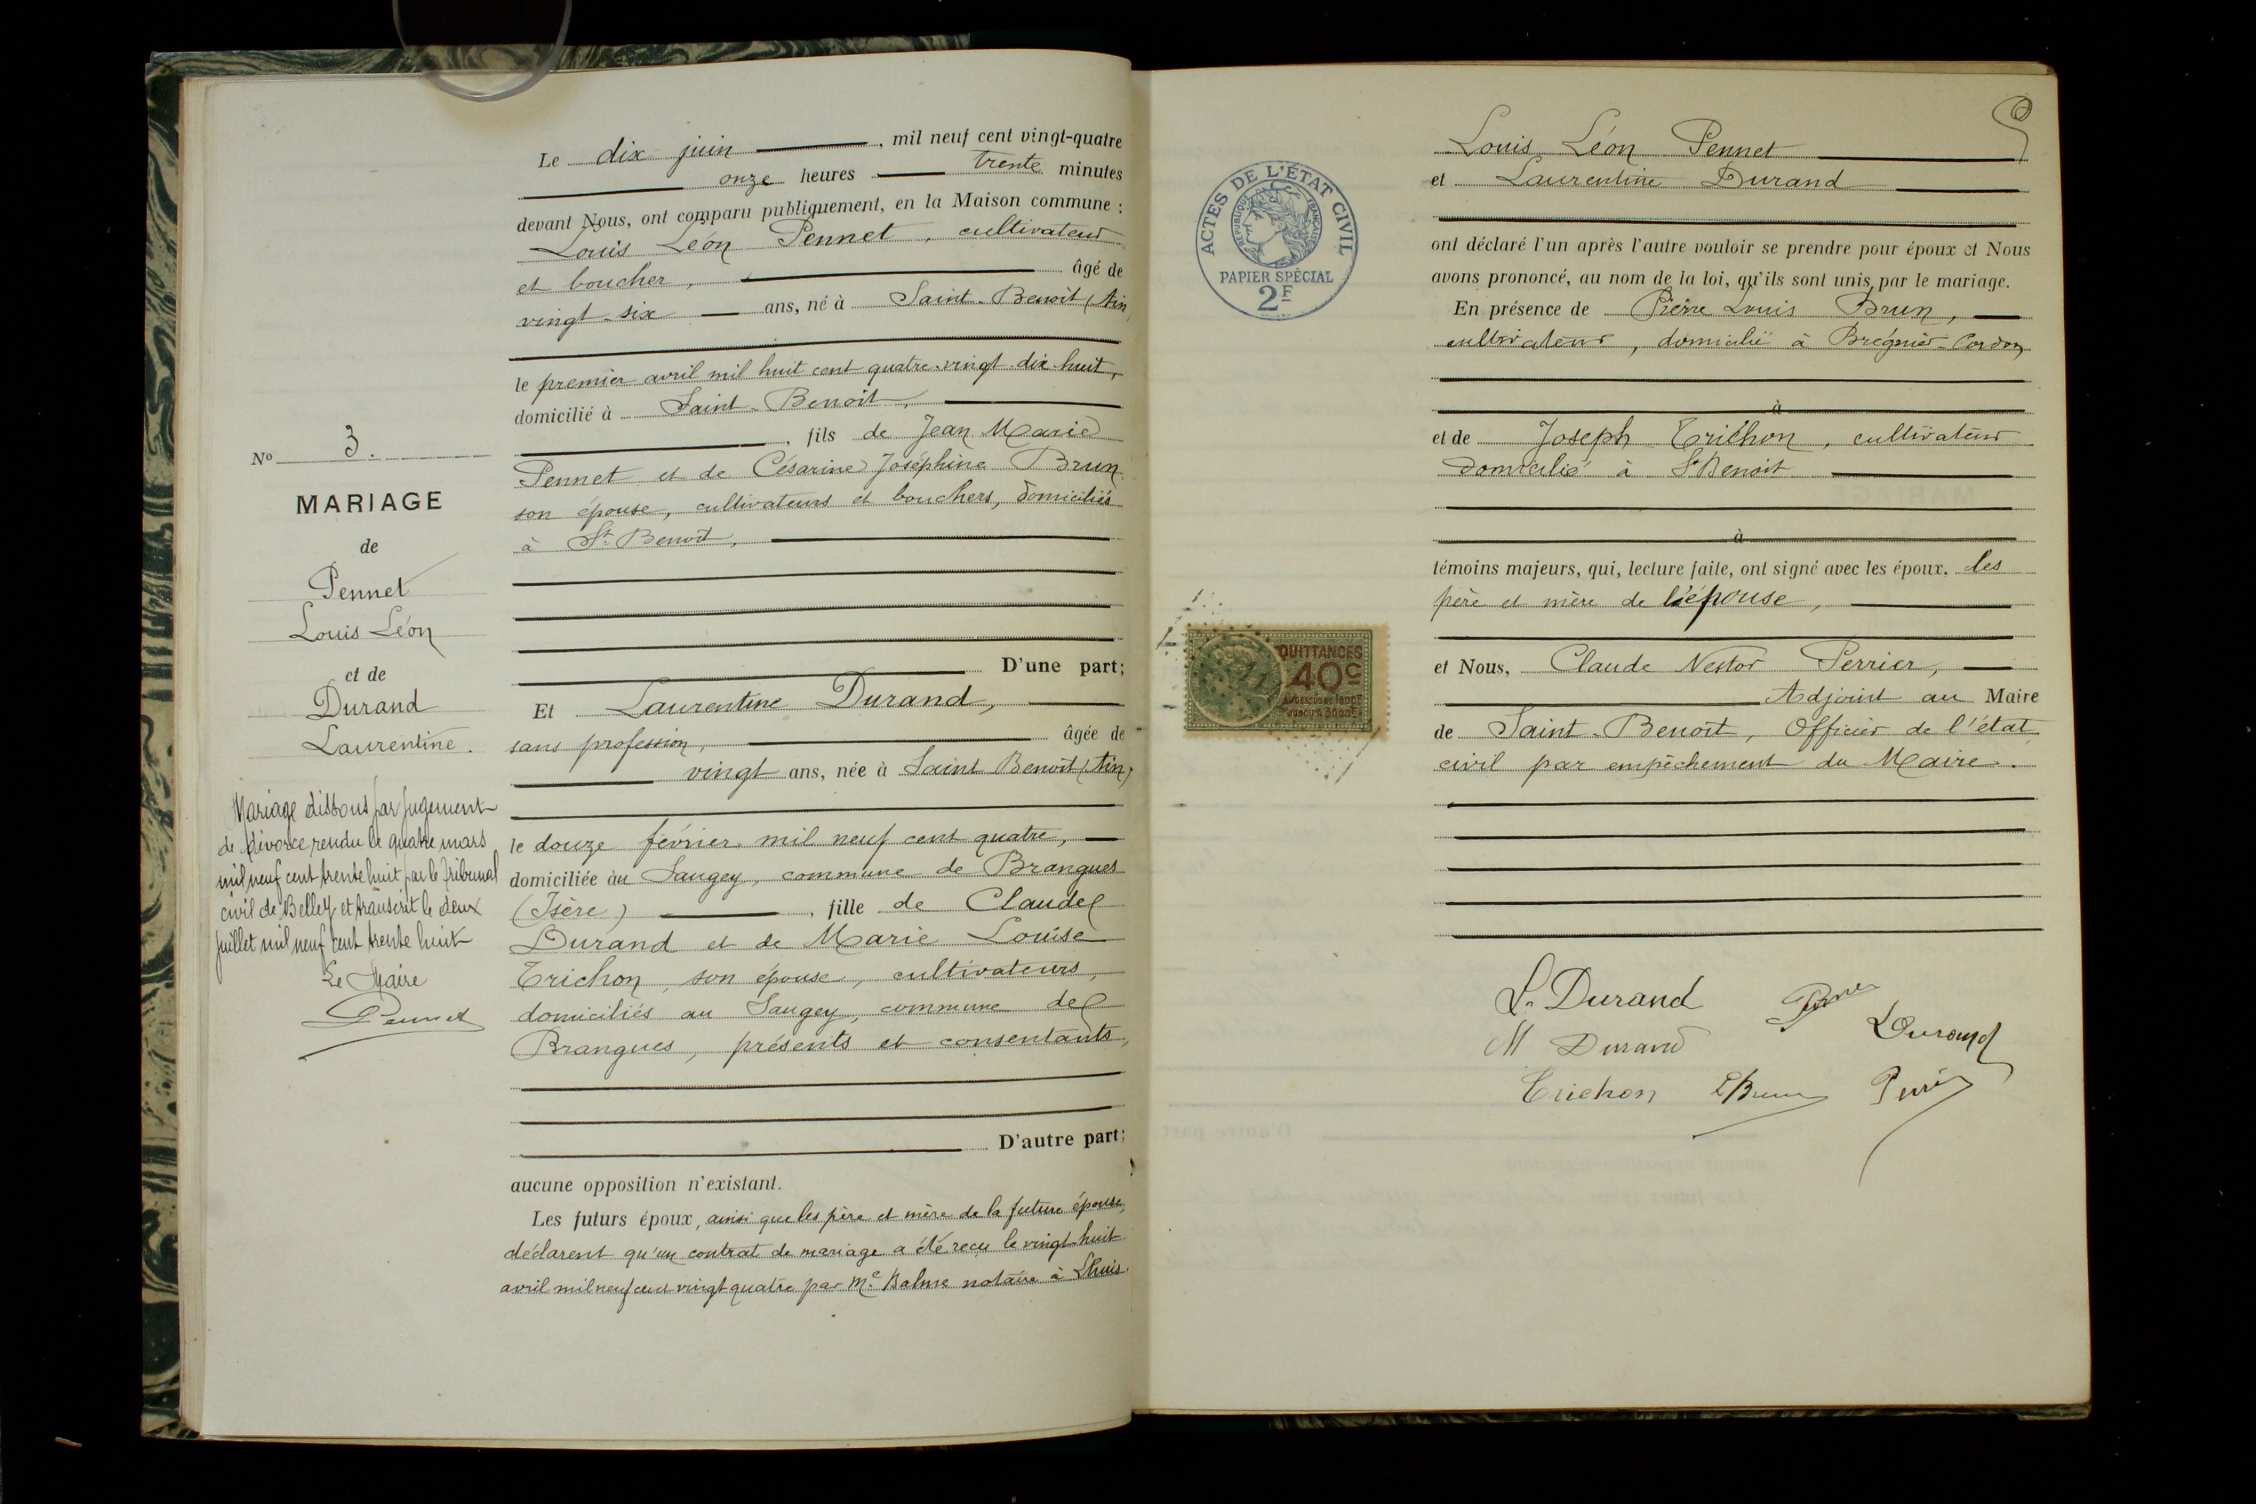 Le dix juin, mil neuf cent vingt-quatre
onze heures trente minutes
devant Nous, ont comparu publiquement, en la Maison commune :
Louis Léon Pennet, cultivateur
et boucher, âgé de
vingt-six ans, né à Saint-Benoit (Ain)
le premier avril mil huit cent quatre-vingt dix-huit,
domicilié à Saint-Benoit,
, fils de Jean Marie
Pennet et de Césarine Joséphine Brun
son épouse, cultivateurs et bouchers, domiciliés
à St Benoit,
D'une part;
Et Laurentine Durand,
sans profession, âgée de
vingt ans, née à Saint Benoit (Ain)
le douze février mil neuf cent quatre,
domiciliée au Saugey, commune de Brangues
(Isère), fille de Claude
Durand et de Marie Louise
Trichon, son épouse, cultivateurs,
domiciliés au Saugey, commune de
Brangues, présents et consentants,
D'autre part;
aucune opposition n'existant.
Les futurs époux, ainsi que les père et mère de la future épouse,
déclarent qu'un contrat de mariage a été reçu le vingt-huit
avril mil neuf cent vingt quatre par Me Balme notaire à Lhuis.
No 3.
MARIAGE
de
Pennet
Louis Léon
et de
Durand
Laurentine.
Mariage dissous par jugement
de divorce rendu le quatre mars
mil neuf cent trente huit par le Tribunal
civil de Belley et transcrit le deux
juillet mil neuf cent trente huit
Le Maire
Pennet
ACTES DE L'ÉTAT CIVIL
RÉPUBLIQUE FRANÇAISE
PAPIER SPÉCIAL
2F
QUITTANCES
40c
Louis Léon Pennet
et Laurentine Durand
ont déclaré l'un après l'autre vouloir se prendre pour époux et Nous
avons prononcé, au nom de la loi, qu'ils sont unis par le mariage.
En présence de Pierre Louis Brun,
cultivateur, domicilié à Brégnier-Cordon
à
et de Joseph Trichon, cultivateur
domicilié à St Benoit
à
témoins majeurs, qui, lecture faite, ont signé avec les époux, les
père et mère de l'épouse,
et Nous, Claude Nestor Perrier,
Adjoint au Maire
de Saint-Benoit, Officier de l'état
civil par empêchement du Maire.
L. Durand
M Durand
L Durand
Trichon